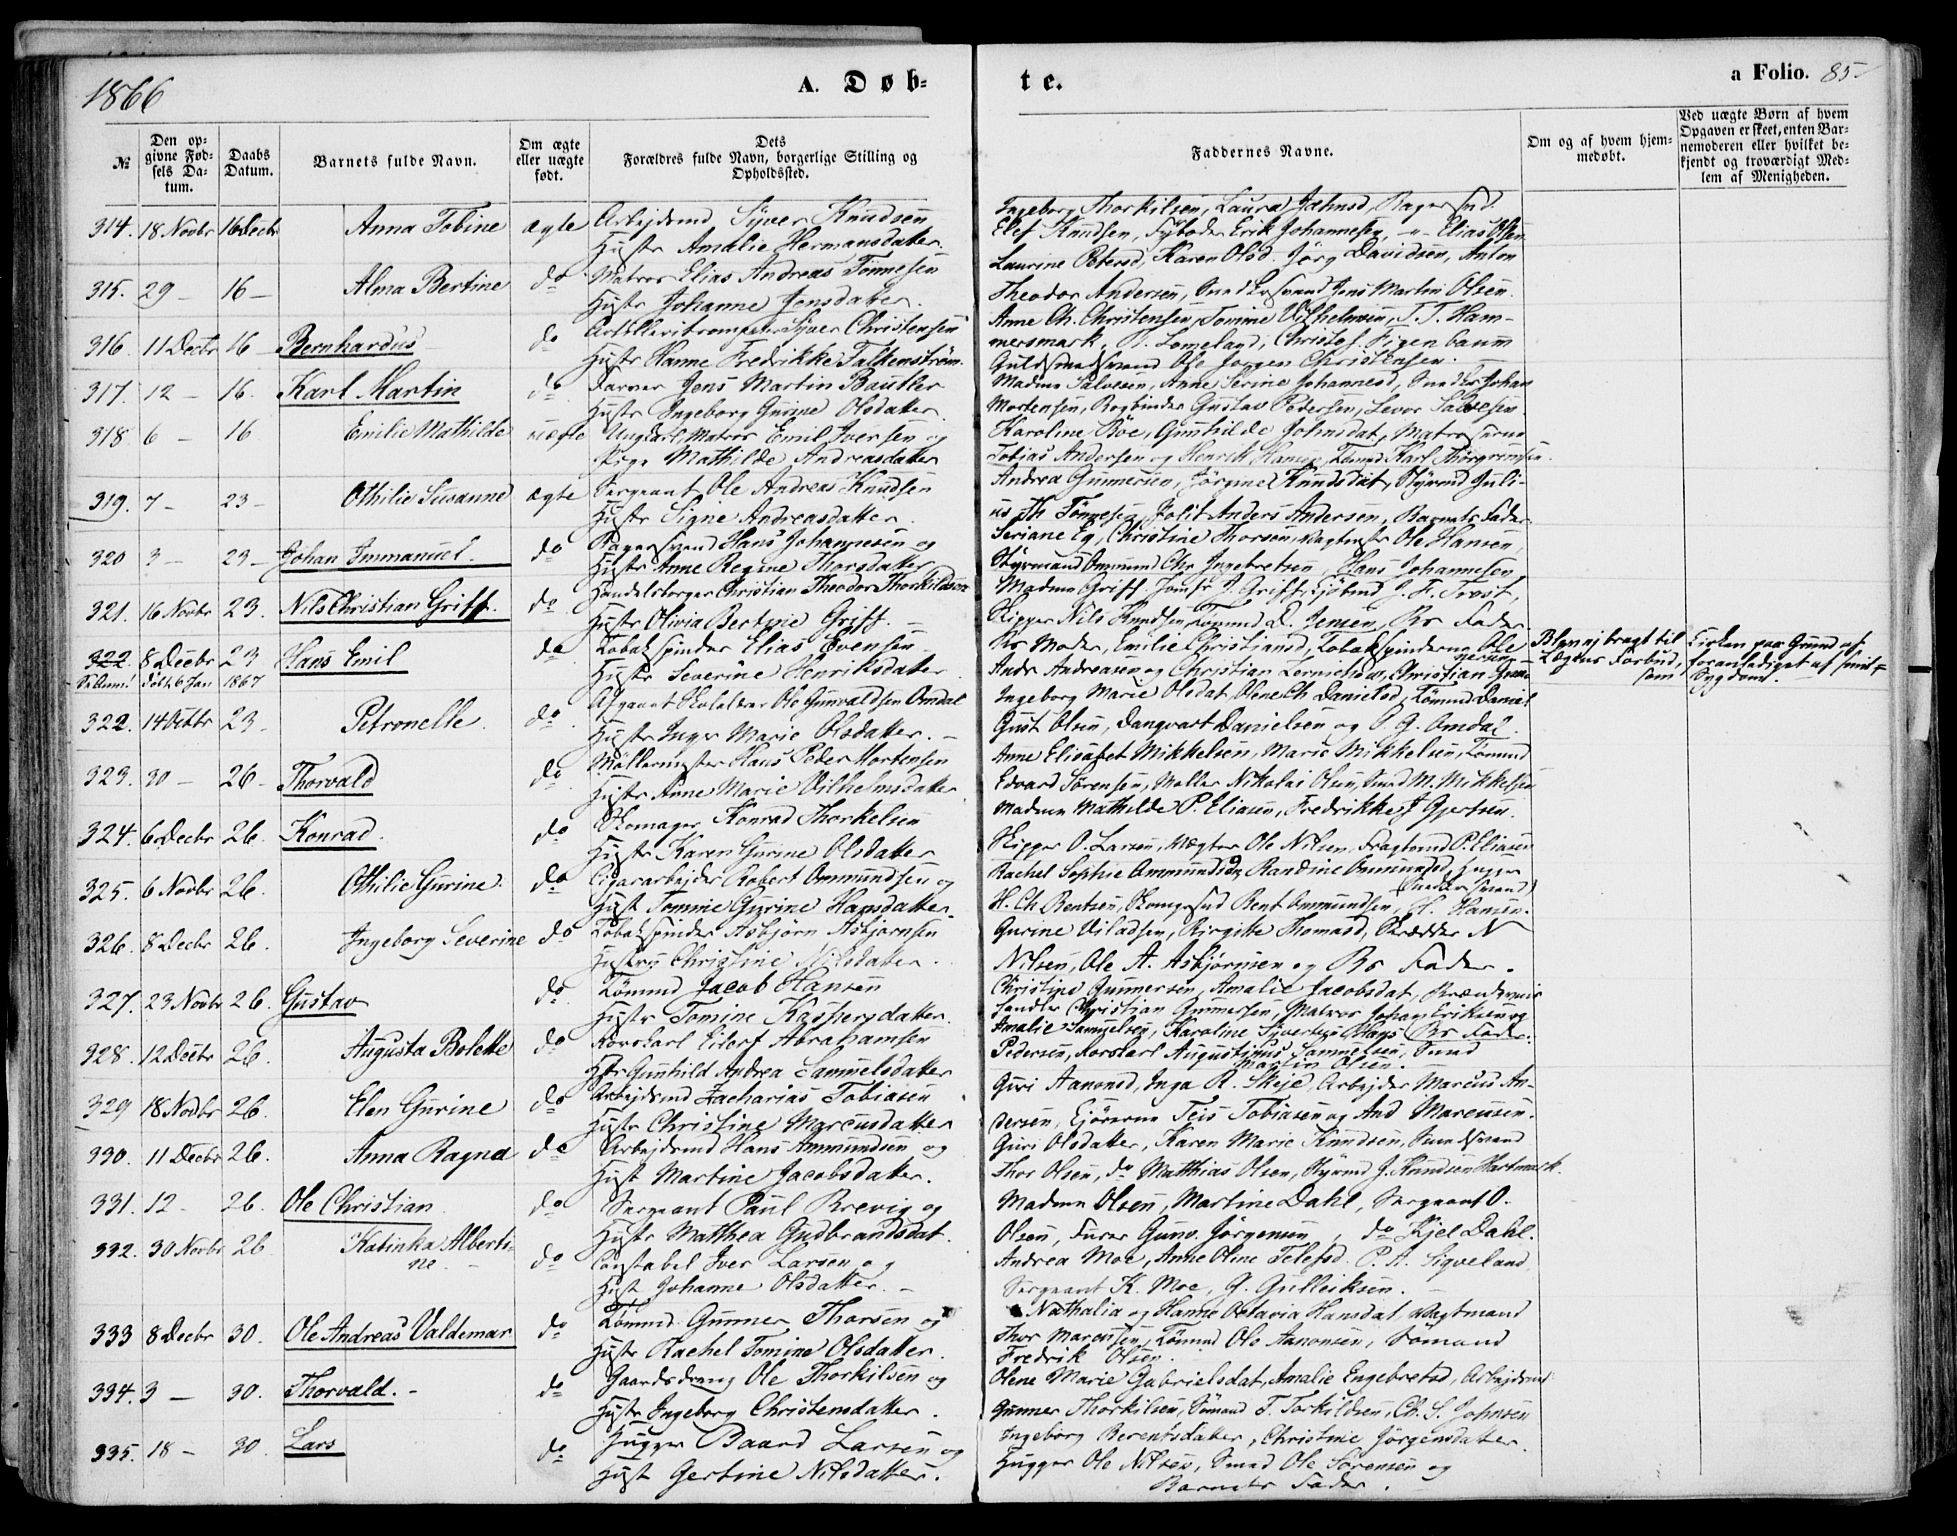 1866
A. Døb-
te.
a Folio. 85
№
Den op-
givne Fød-
sels Da-
tum.
Daabs
Datum.
Barnets fulde Navn.
Om ægte
eller uægte
født.
Dets
Forældres fulde Navn, borgerlige Stilling og
Opholdssted.
Faddernes Navne.
Om og af hvem hjem-
medøbt.
Ved uægte Børn af hvem
Opgaven er skeet, enten Bar-
nemoderen eller hvilket be-
kjendt og troværdigt Med-
lem af Menigheden.
314. 18 Novbr 16 Decbr Anna Tobine ægte Arbejdsmd Syver Knudsen
Hustr Amalie Hermansdatter.
Ingeborg Thorkilsen, Laura Jahnsd,
Elef Knudsen, Erik Johannesen, Elias Olsen
315. 29 - 16 - Alma Bertine do Matros Elias Andreas Tønnesen
Hustr Johanne Jensdatter.
Laurine Petersd, Karen Olsd. Jørg Davidsen, Anton
Theodor Andersen, Jens Martin Olsen.
316. 11 Decbr 16 - Bernhardus do Syver Christensen
Hustr Hanne Fredrikke Falkenstrøm.
Anne Ch. Christensen, Tomine Vilhelmsen, T. T. Ham-
mersmark, T. Lomeland, Christof. Figenbaum
Guldsmedsvend Ole Jørgen Christensen.
317. 12 - 16. Karl Martin do Farver Jens Martin Bautler
Hustr Ingeborg Gurine Olsdatter.
Madme Salvesen, Anne Serine Johannesd, Johan
Mortensen, Bogbinder Gustav Pedersen, Levor Salvesen
318 6 - 16 Emilie Mathilde uægte Ungkarl Matros Emil Iversen og
Pige Mathilde Andreasdatter
Karoline Bøe, Gunhilde Johnsdat,
Tobias Andersen og Henrik Hansen, Karl Thorgrimsen
319. 7 - 23 - Othilie Susanne ægte Sergeant Ole Andreas Knudsen
Hustr Signe Andreasdatter.
Andrea Gunnersen, Jørgine Knudsdat, Styrmd Juli-
us Th Tønnesen, Polit Anders Andersen, Barnets Fader
320 3 - 23 - Johan Immanuel. do Bagersvend Hans Johannesen og
Hustr Anne Regine Thorsdatter
Seriane Eg, Christine Thorsen, Vægter Ole Hansen,
Styrmand Ommund Chr Ingebretsen, Hans Johannesen
321. 16 Novbr 23. Nils Christian Griff. do Handelsborger Christian Theodor Thorkildsen
Hustr Olivia Bertine Griff. -
Madme Griff. Jomfr J. Griff, Kjøbmd J. F. Trost,
Skipper Nils Knudsen, Tømmd D. Jensen, Bs Fader.
322 8 Decbr 23 Hans Emil do Tobakspinder Elias Evensen
døbt 6 Jan 1867 Hustr Severine Henriksdatter
Bs Moder, Emilie Christiansd, Tobakspinderne Ole
Andr Andreasen og Christian
Blev ej bragt til
Lægens Forbud,
Kirken paa Grund af
foranlediget af smit-
Sygdom.
322. 14 Octbr 23 - Petronelle. do Afgaaet Skolelærer Ole Gunvaldsen Omdal
Hustr Inger Marie Olsdatter. -
Ingeborg Marie Olsdat, Olene Ch. Danielsd, Tømmd Daniel
Gust Olsen, Dangvart Danielsen og P. G. Omdal.
323. 30 - 26 - Thorvald do Møllermester Hans Peder Mortensen
Hustr Anne Marie Vilhelmsdatter.
Anne Elisabet Mikkelsen, Marie Mikkelsen, Tømmd
Edvard Sørensen, Møller Nikolai Olsen, M. Mikkelsen
324. 6 Decbr 26. Konrad. do Skomager Konrad Thorkelsen
Hustr Karen Gurine Olsdatter
Madme Mathilde P. Eliasen, Fredrikke J Gjertsen.
Skipper O. Larsen, Vægter Ole Nilsen, Fragtmd P. Eliasen
325. 6 Novbr 26. Othilie Gurine. do Cigararbejder Robert Ommundsen og
Hust Tomine Gurine Hansdatter.
Rachel Sophie Ommundsd, Randine Ommundsd, Hugger
H. Ch Bentsen, Bent Ommundsen, H. Hansen.
326. 8 Decbr 26. Ingeborg Severine do Tobakspinder Asbjørn Asbjørnsen
Hustru Christine Nilsdatter.
Gurine Viladsen, Birgitte Thomasd, Skrædder N
Nilsen, Ole A. Asbjørnsen og Bs Fader.
327. 23 Novbr 26. Gustav do Tømmd Jacob Hansen
Hustr Tomine Kaspersdatter.
Christine Gunnersen, Amalie Jacobsdat, Brændeviis
handler Christian Gunnersen, Matros Johan Eriksen og
Bs Fader.
328. 12 Decbr 26. Augusta Bolette do Rorskarl Eilert Abrahamsen
Hstr Gunhild Andrea Samuelsdatter
Amalie Samuelsen, Karoline Syvertsen,
Pedersen, Rorskarl Augustinus Samuelsen,
Martin Olsen. -
329 18 Novbr 26. Elen Gurine do Arbejdsmd Zacharias Tobiasen
Hustr Christine Marcusdatter
Guri Aanonsd, Inga R. Skeje, Arbejder Marcus An-
dersen, Teis Tobiasen og And Marcusen.
330. 11 Decbr 26. Anna Ragna do Arbejdsmd Hans Ammundsen og
Hust Martine Jacobsdatter.
Guri Olsdatter, Karen Marie Knudsen,
Thor Olsen, do Matthias Olsen, Styrmd J. Knudsen Hartmark.
331. 12 - 26. Ole Christian do Sergeant Paul Brevig og
Hustr Matthea Gudbrandsdat.
Madme Olsen, Martine Dahl, Sergeant O.
Olsen, Furer Gunv. Jørgensen, do Kjel Dahl.
332. 30 Novbr 26 Katinka Alberti-
ne - do Constabel Iver Larsen og
Hust Johanne Olsdatter. -
Andrea Moe, Anne Oline Telefsd. P. A. Sigveland
Sergeant K. Moe, G. Gulleiksen.
333 8 Decbr 30. Ole Andreas Valdemar do Tømmd Gunner Thorsen og
Hustr Rachel Tomine Olsdatter.
Nathalia og Hanne Octavia Hansdat, Vagtmand
Thor Marcussen, Tømmd Ole Aanonsen, Sømand
Fredrik Olsen.
334. 3 - 30. Thorvald. - do Gaardsdreng Ole Thorkilsen og
Hustr Ingeborg Christensdatter.
Olene Marie Gabrielsdat, Amalie Engebretsd, Arbejdsmd
Gunner Thorkilsen, Sømand T. Torkildsen, Ch. S. Johnsen
335. 18 - 30. Lars do Hugger Baard Larsen og
Hust Gertine Nilsdatter.
Ingeborg Berentsdatter, Christine Jørgensdatter.
Hugger Ole Nilsen, Ole Sørensen og
Barnets Fader.